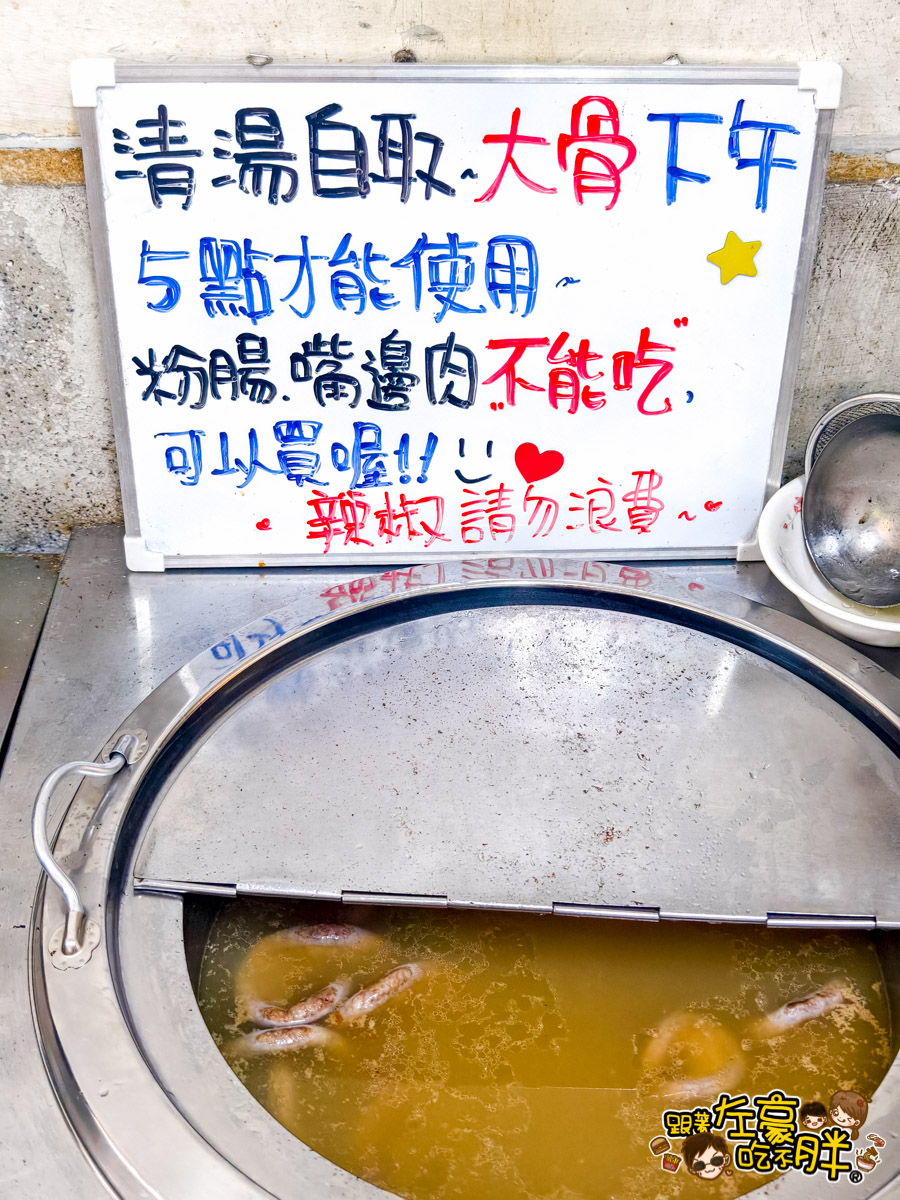 清湯自取~大骨下午
5點才能使用~
粉腸.嘴邊肉"不能吃",
可以買喔!!
辣椒請勿浪費~
跟著左豪
吃不胖®